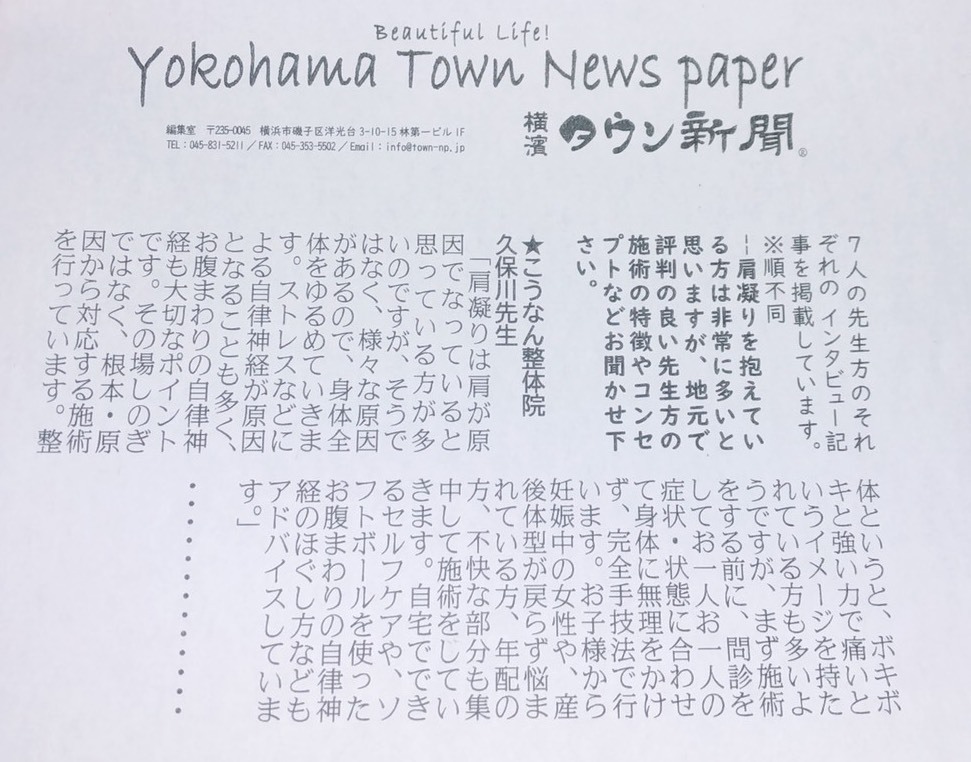 Beautiful Life!
Yokohama Town News paper
横濱
タウン新聞®
編集室 〒235-0045 横浜市磯子区洋光台3-10-15 林第一ビル1F
TEL：045-831-5211／FAX：045-353-5502／Email：info@town-np.jp
7人の先生方のそれ
ぞれの インタビュー記
事を掲載しています。
※順序不同
―肩凝りを抱えてい
る方は非常に多いと
思いますが、地元で
評判の良い先生方の
施術の特徴やコンセ
プトなどお聞かせ下
さい。
★こうなん整体院
久保川先生
「肩凝りは肩が原
因でなっていると
思っている方が多
いのですが、そうで
はなく、様々な原因
があるので、身体全
体をゆるめていきま
す。ストレスなどに
よる自律神経が原因
となることも多く、
お腹まわりの自律神
経も大切なポイント
です。その場しのぎ
ではなく、根本・原
因から対応する施術
を行っています。整
体というと、ボキボ
キと強い力で痛いと
いうイメージを持た
れている方も多いよ
うですが、まず施術
をする前に、問診を
してお一人お一人の
症状・状態に合わせ
て身体に無理をかけ
ず、完全手技法で行
います。お子様から
妊娠中の女性や、産
後体型が戻らず悩ま
れている方、年配の
方、不快な部分も集
中して施術をしてい
きます。自宅ででき
るセルフケアや、ソ
フトボールを使った
お腹まわりの自律神
経のほぐし方なども
アドバイスしていま
す。」
・・・・・・・・・・・・